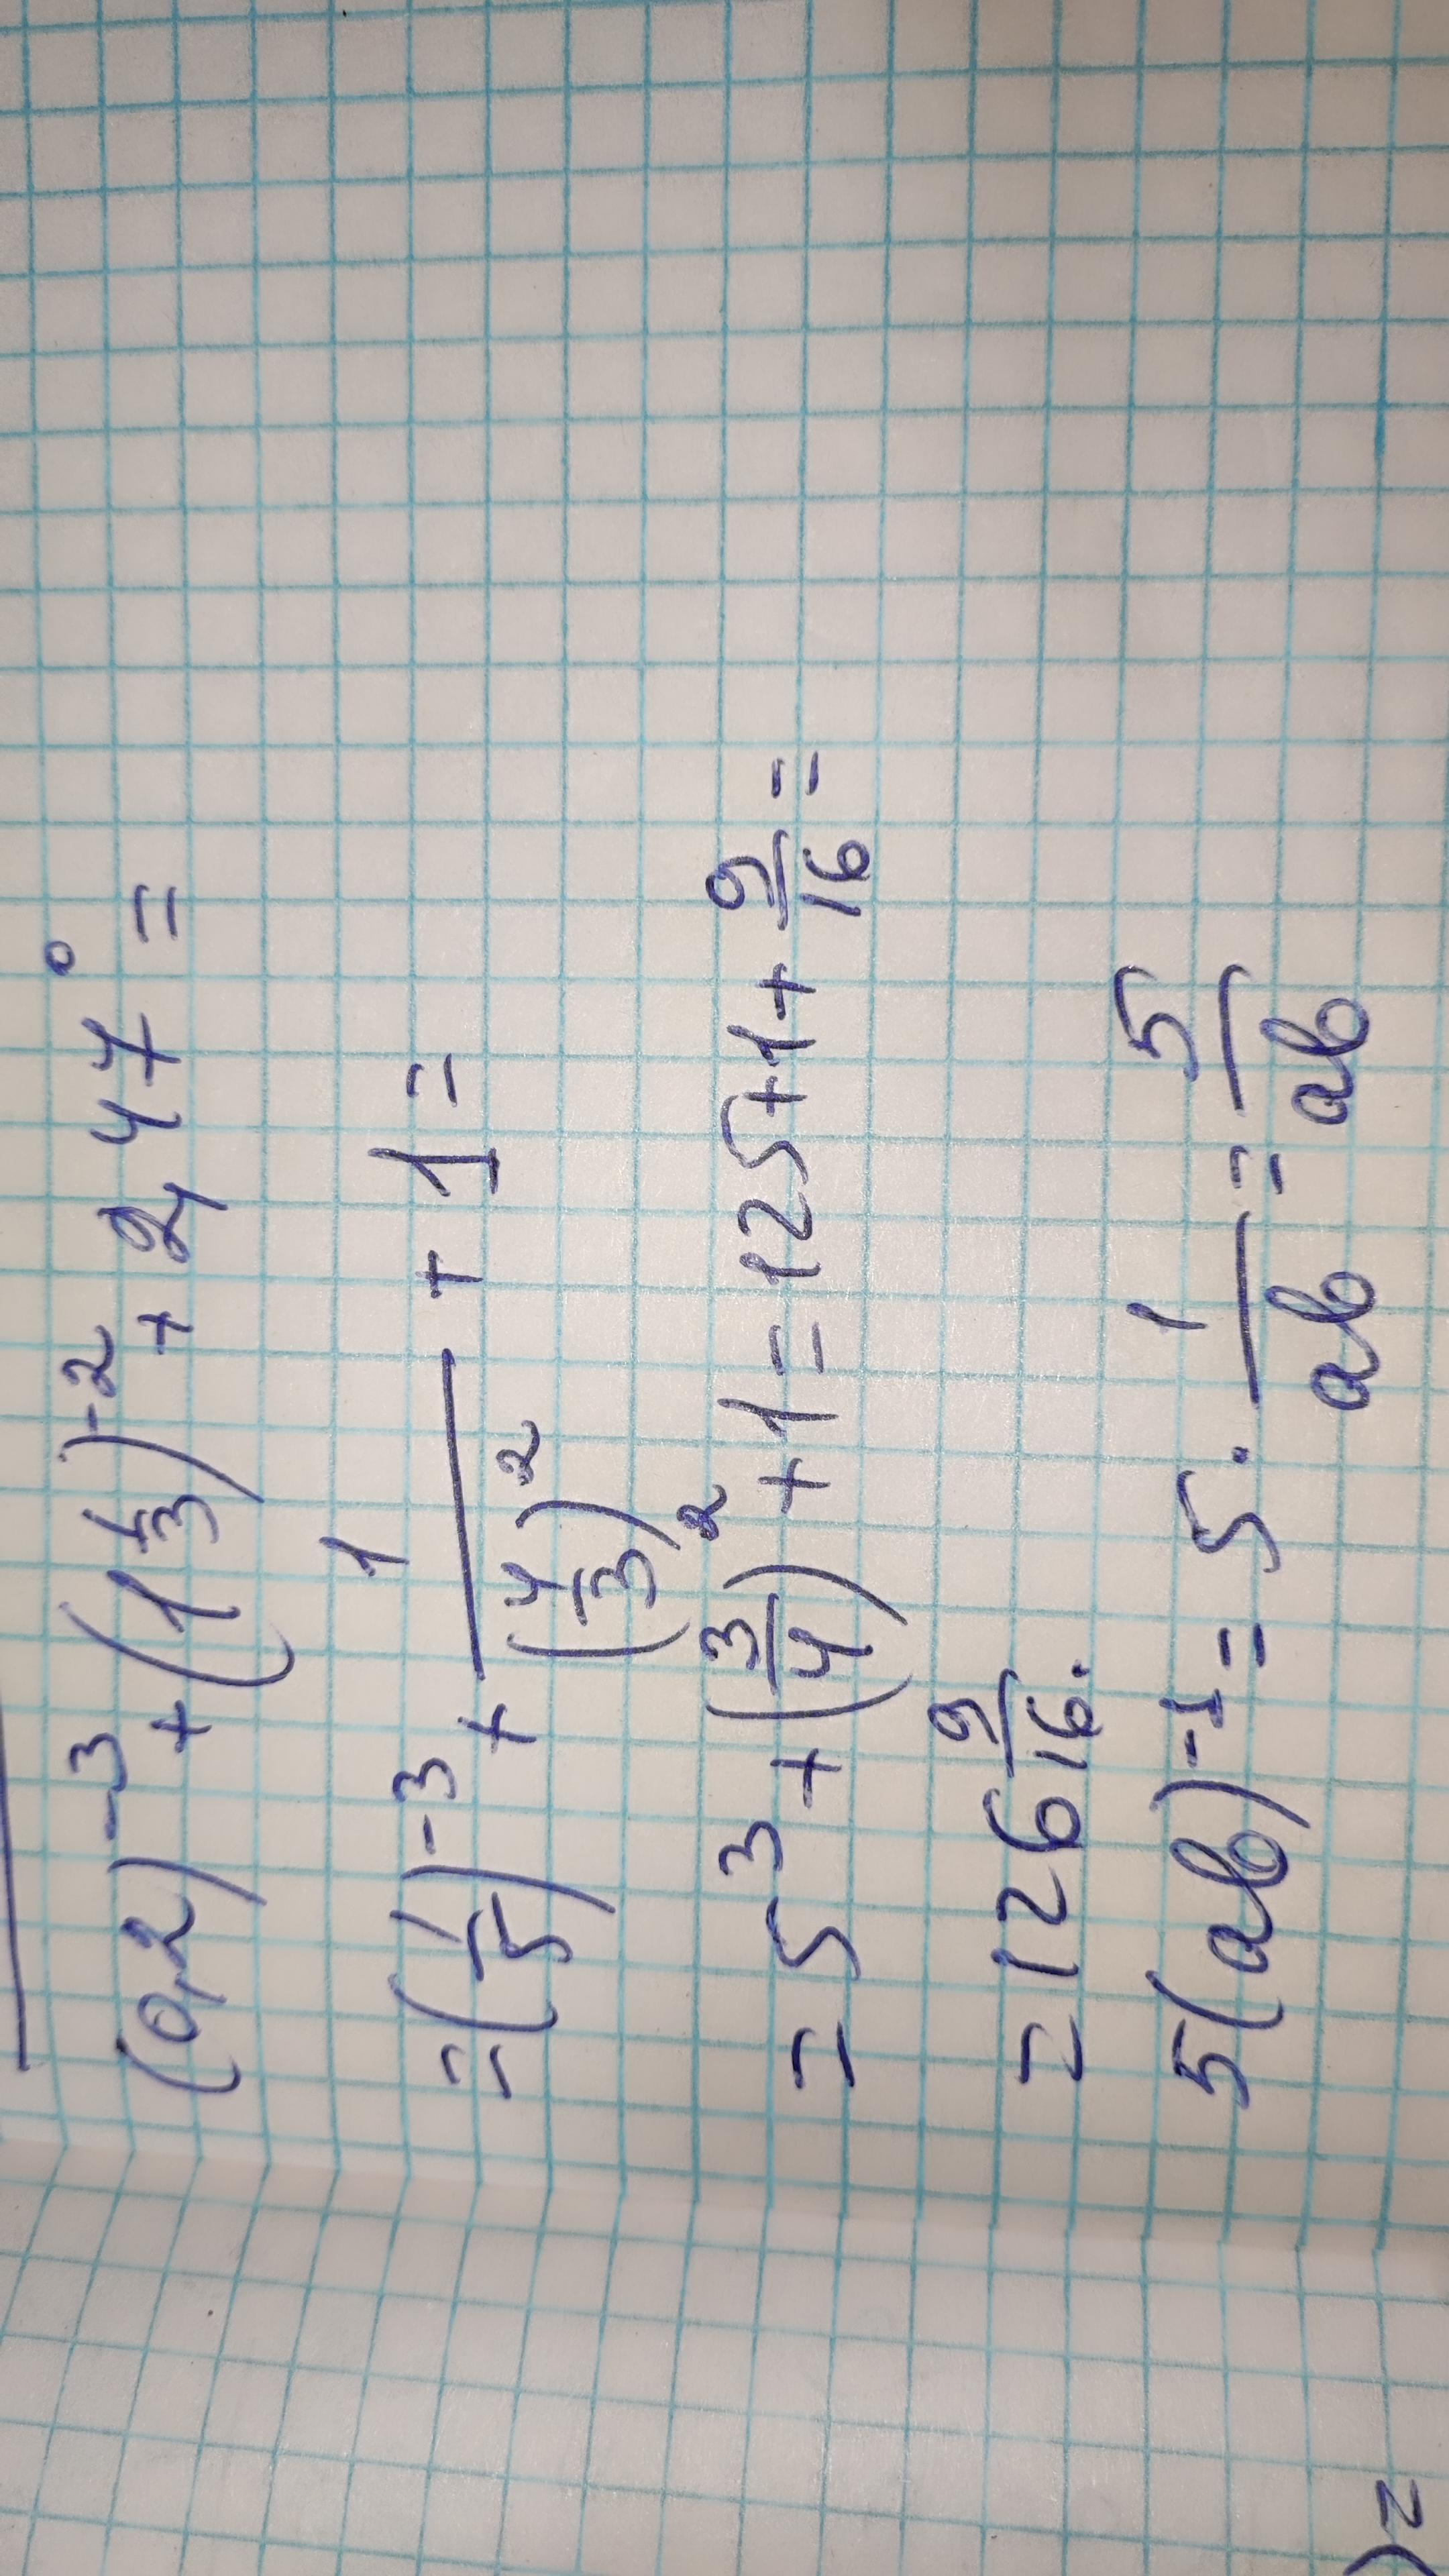 (0,2)⁻³ + (1 1/3)⁻² + 2,47⁰ =
= (1/5)⁻³ + 1/(4/3)² + 1 =
= 5³ + (3/4)² + 1 = 125 + 1 + 9/16 =
= 126 9/16.
5(ab)⁻¹ = 5 · 1/ab = 5/ab